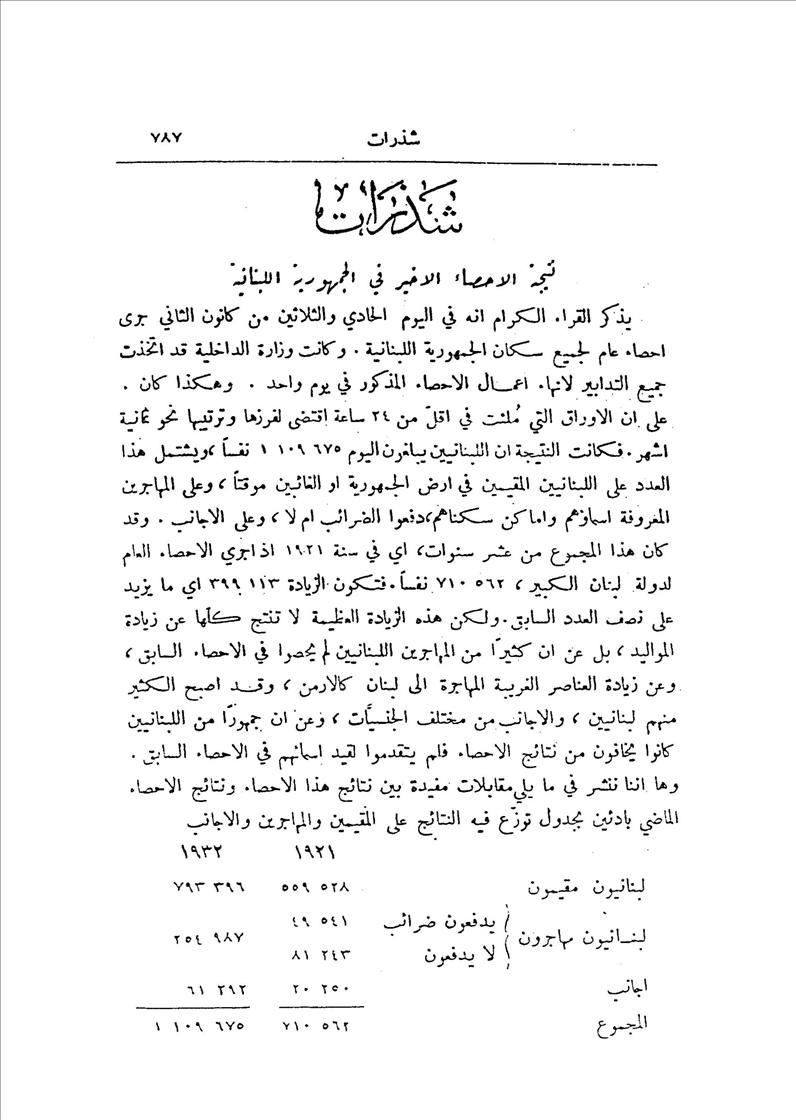 شذرات ٧٨٧
شذرات
نتيجة الاحصاء الاخير في الجمهورية اللبنانية
يذكر القراء الكرام انه في اليوم الحادي والثلاثين من كانون الثاني جرى
احصاء عام لجميع سكان الجمهورية اللبنانية . وكانت وزارة الداخلية قد اتخذت
جميع التدابير لانهاء اعمال الاحصاء المذكور في يوم واحد . وهكذا كان .
على ان الاوراق التي مُلئت في اقلّ من ٢٤ ساعة اقتضى لفرزها وترتيبها نحو ثمانية
اشهر . فكانت النتيجة ان اللبنانيين يبلغون اليوم ٦٧٥ ١٠٩ ١ نفساً ، ويشتمل هذا
العدد على اللبنانيين المقيمين في ارض الجمهورية او الغائبين موقتاً ، وعلى المهاجرين
المعروفة اسماؤهم واماكن سكناهم، دفعوا الضرائب ام لا ، وعلى الاجانب . وقد
كان هذا المجموع من عشر سنوات، اي في سنة ١٩٢١ اذ اجري الاحصاء العام
لدولة لبنان الكبير ، ٥٦٢ ٧١٠ نفساً . فتكون الزيادة ١١٣ ٣٩٩ اي ما يزيد
على نصف العدد السابق . ولكن هذه الزيادة العظيمة لا تنتج كلّها عن زيادة
المواليد ، بل عن ان كثيرًا من المهاجرين اللبنانيين لم يحصوا في الاحصاء السابق ،
وعن زيادة العناصر الغريبة المهاجرة الى لبنان كالارمن ، وقد اصبح الكثير
منهم لبنانيين ، والاجانب من مختلف الجنسيَّات ، وعن ان جمهورًا من اللبنانيين
كانوا يخافون من نتائج الاحصاء فلم يتقدموا لقيد اسمائهم في الاحصاء السابق .
وها اننا ننشر في ما يلي مقابلات مفيدة بين نتائج هذا الاحصاء ونتائج الاحصاء
الماضي بادئين بجدول توزّع فيه النتائج على المقيمين والمهاجرين والاجانب
١٩٢١ ١٩٣٢
لبنانيون مقيمون ٥٢٨ ٥٥٩ ٣٩٦ ٧٩٣
يدفعون ضرائب ٥٤١ ٤٩
لبنانيون مهاجرون ٩٨٧ ٢٥٤
لا يدفعون ٢٤٣ ٨١
اجانب ٢٥٠ ٢٠ ٢٩٢ ٦١
المجموع ٥٦٢ ٧١٠ ٦٧٥ ١٠٩ ١